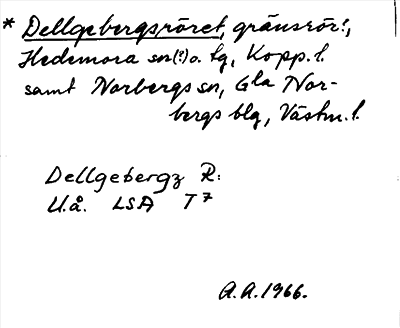 * Dellgebergsröret, gränsrör!,
Hedemora sn(?) o. tg, Kopp. l.
samt Norbergs sn, Gla Nor-
bergs blg, Västm. l.
Dellgebergz R:
U.å. LSA T7
A.A. 1966.